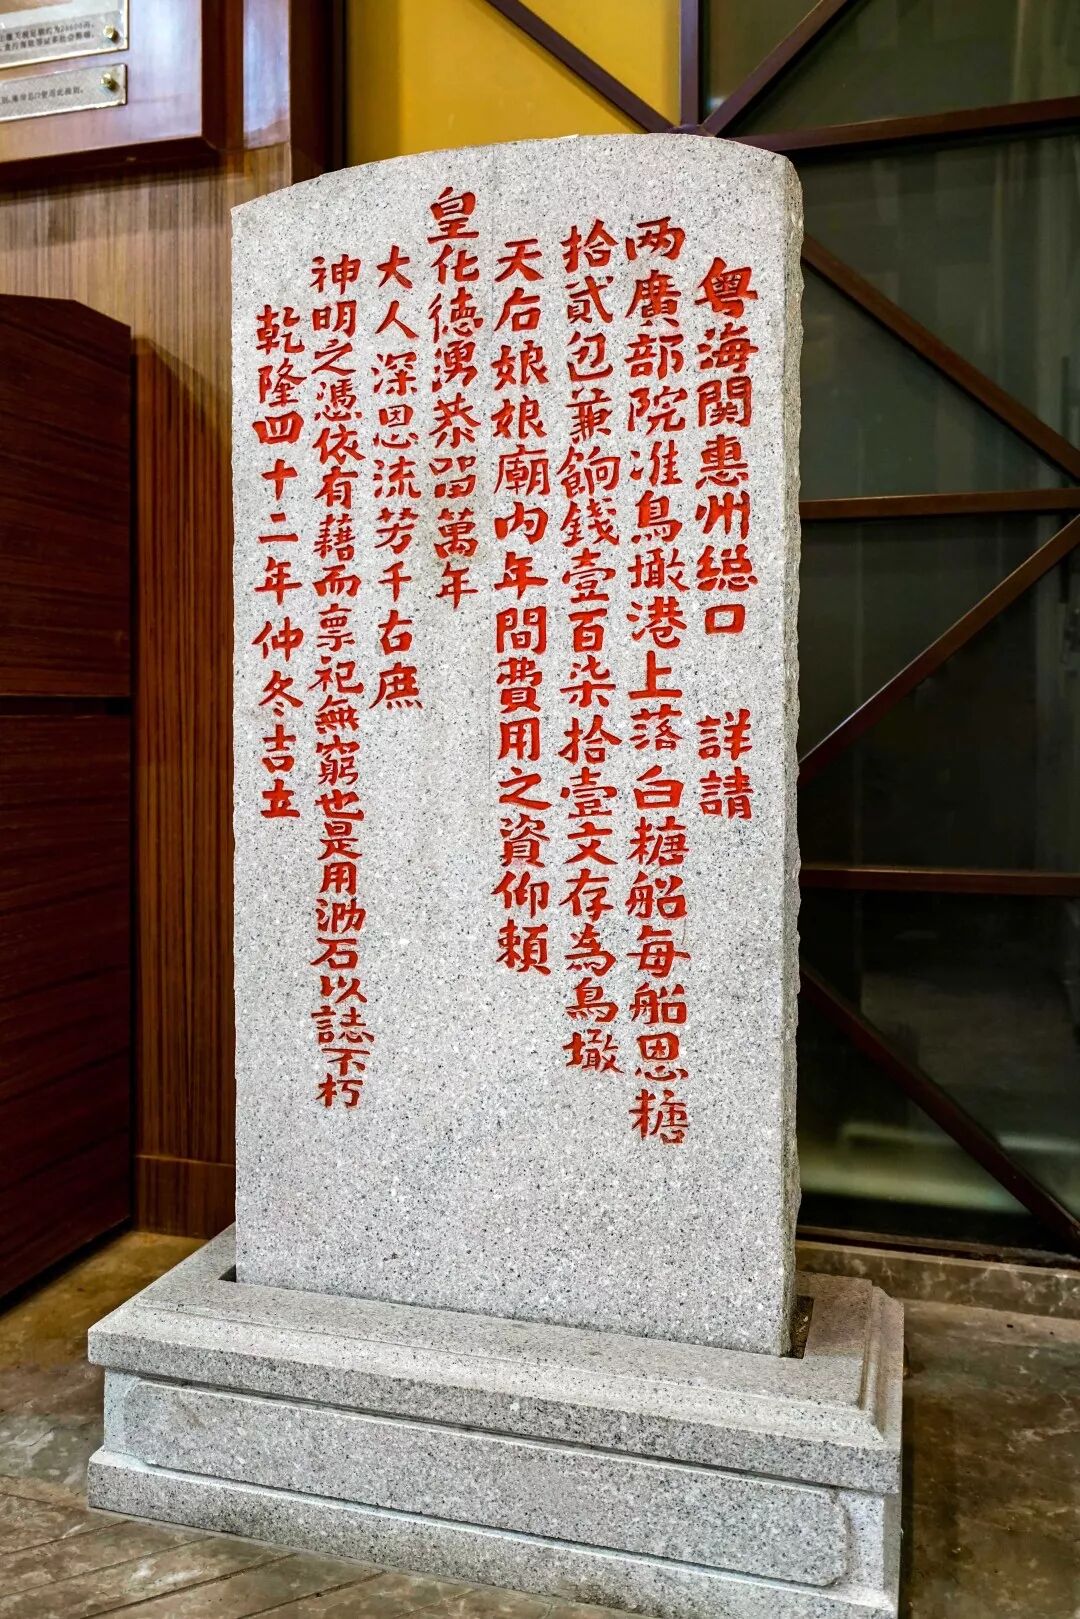 粤海関惠州総口 詳請
两廣部院准鳥墩港上落白糖船每船恩糖
拾貳包兼餉錢壹百柒拾壹文存為鳥墩
天后娘娘廟内年間費用之資仰賴
皇化德湧恭畱萬年
大人深恩流芳千右庶
神明之憑依有藉而禀祀無窮也是用泐石以誌不朽
乾隆四十二年仲冬吉立